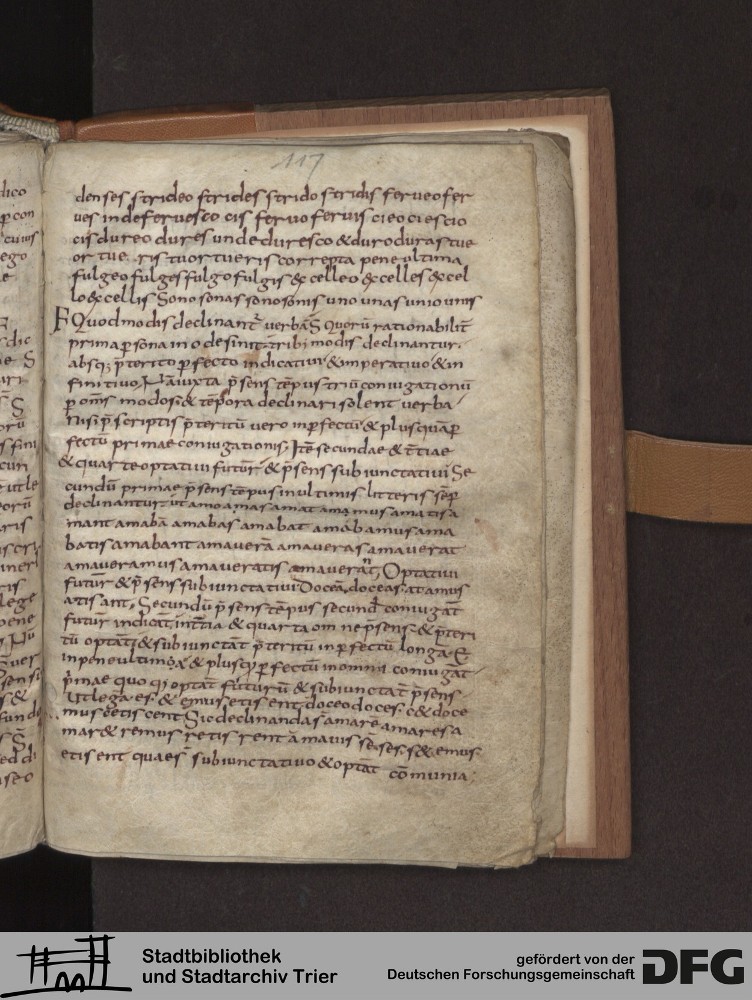 117
denses strideo strides strido stridis ferueofer
ues indeferuesco cis feruo feruis cieociescio
cisdureo dures undeduresco &durodurastue
or tue. ristuortueriscorrepta peneultima
fulgeofulgesfulgofulgis excelleo excelles excel
loexcellis Sonosonassonosonis uno unasuniounis
Quodmodisdeclinant̄ uerba quorū rationabilit̄
prima psona in o desinit tribꝫ modis declinantur.
absqꝫ p̄terito pfecto indicatiui &imperatiuo &in
finitiuo, Nā iuxta p̄sens tēpus triū coniugationū
p om̄s modos & tēpora declinari solent uerba
nisi p̄scriptis p̄teritū uero inpfectū & plusquāp
fectū primae coniugationis, Itē secundae & t̄tiae
& quartæ optatiui futur̄ & p̄sens subiunctatiui Se
cundū primae p̄sens tēpus inultimis litteris sep
declinantur. ut amo amas amat amamus amatis a
mant amabā amabas amabat amabamus ama
batis amabant amauerā amaueras amauerat
amaueramus amaueratis amauerāt, Optatiui
futur̄ & p̄sens subiunctatiui Doceā, doceas. at amus
atis ant, Secundū p̄sens tēpus secund̄ coniugāt̄
futur̄ indicat̄. in t̄tia & quarta omne p̄sens & p̄teri
tū optat̄ & subiunctat̄ p̄teritū inpfectū longā. E
inpenultima & plusqꝫ pfectū in omni coniugat̄
p̄mae quoqꝫ optat̄ futurū & subiunctat̄ p̄sens
Ut legā. es. & emus etis ent. doceo doces. c& doce
mus cetis cent Sic declinandas amare amares a
mar& remus retis rent āmauis sē. ses. s& emus.
etis ent quaes̄ subiunctatiuo & optāt̄ cōmunia,
Stadtbibliothek
und Stadtarchiv Trier
gefördert von der
Deutschen Forschungsgemeinschaft
DFG